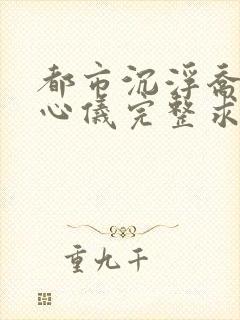 都市沉浮乔
心仪完整求
重九千